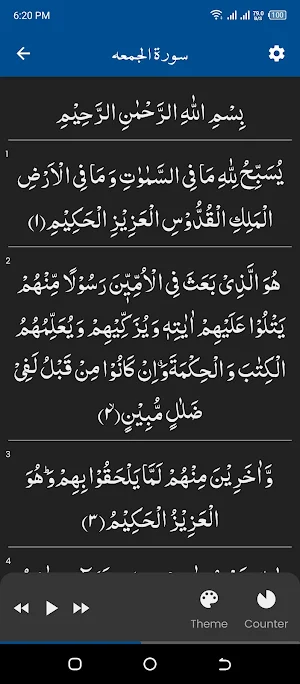 6:20 PM 79.0 B/S 100
سورة الجمعه
بِسْمِ اللّٰهِ الرَّحْمٰنِ الرَّحِيْمِ
1
يُسَبِّحُ لِلّٰهِ مَا فِى السَّمٰوٰتِ وَ مَا فِى الْاَرْضِ
الْمَلِكِ الْقُدُّوْسِ الْعَزِيْزِ الْحَكِيْمِ ﴿۱﴾
2
هُوَ الَّذِىْ بَعَثَ فِى الْاُمِّيّٖنَ رَسُوْلًا مِّنْهُمْ
يَتْلُوْا عَلَيْهِمْ اٰيٰتِهٖ وَ يُزَكِّيْهِمْ وَ يُعَلِّمُهُمُ
الْكِتٰبَ وَ الْحِكْمَةَ ۗ وَ اِنْ كَانُوْا مِنْ قَبْلُ لَفِىْ
ضَلٰلٍ مُّبِيْنٍ ﴿۲﴾
3
وَّ اٰخَرِيْنَ مِنْهُمْ لَمَّا يَلْحَقُوْا بِهِمْ ؕ وَ هُوَ
الْعَزِيْزُ الْحَكِيْمُ ﴿۳﴾
4
Theme Counter